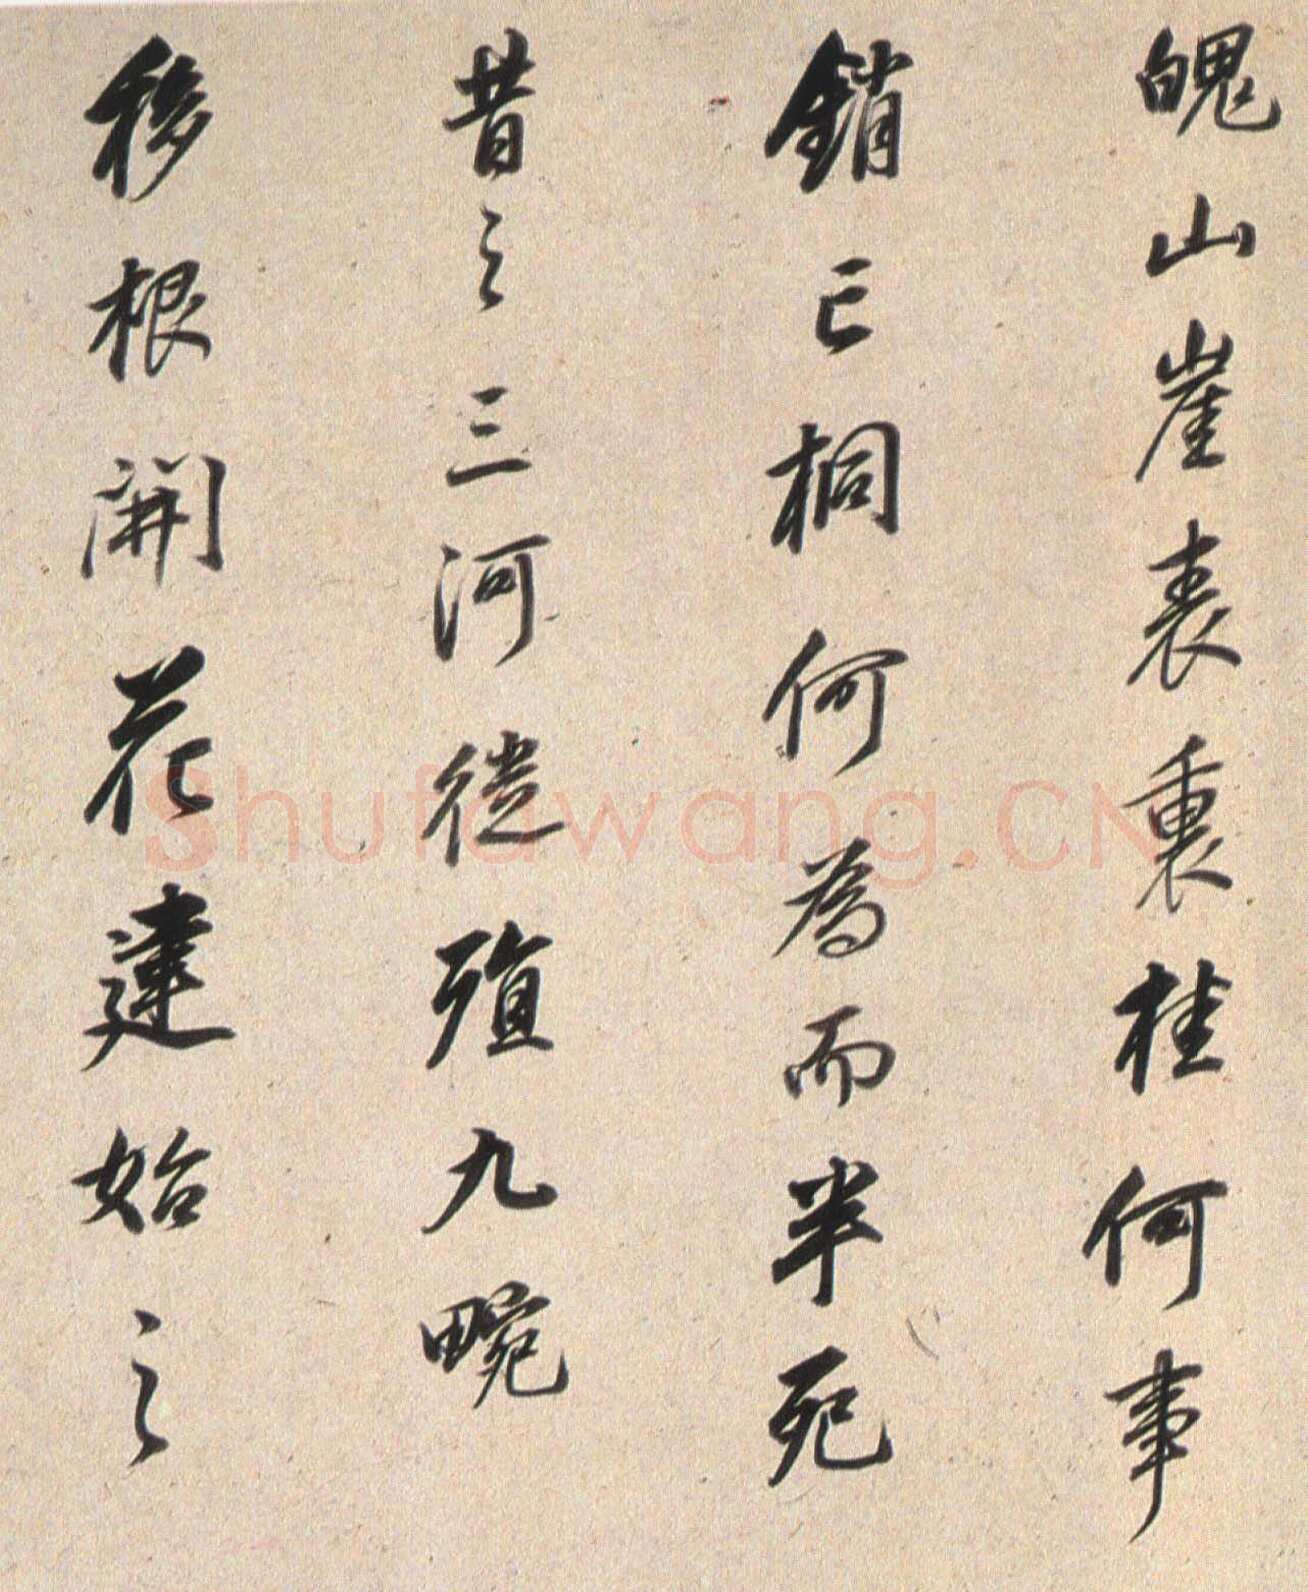 魄山崖表裏桂何事
銷亡桐何為而半死
昔之三河徙殖九畹
移根開花建始之
Shufawang.CN